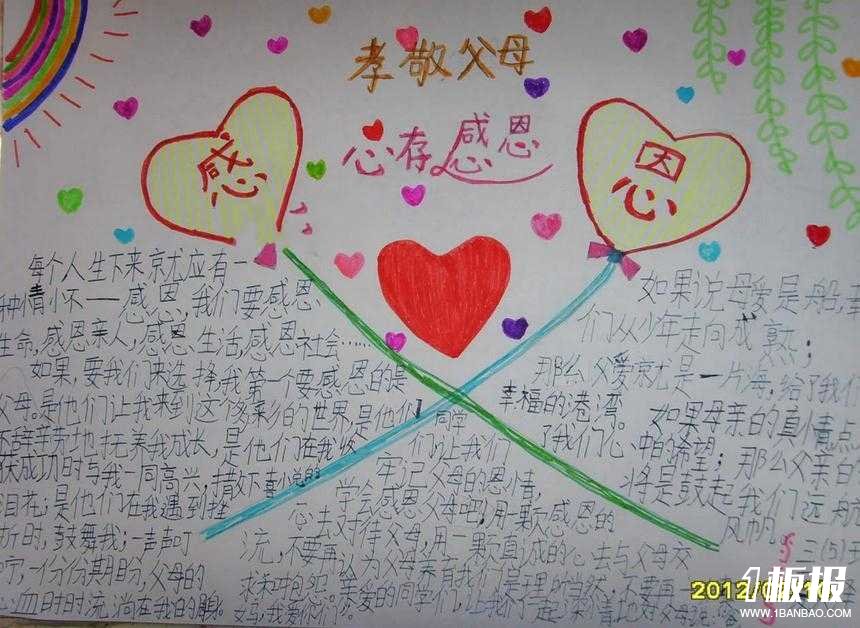 孝敬父母
心存感恩
感
恩
每个人生下来就应有一
种情怀——感恩,我们要感恩
生命,感恩亲人,感恩生活,感恩社会……
如果,要我们来选择,我第一个要感恩的是
父母。是他们让我来到这个多彩的世界,是他们
不辞辛劳地抚养我成长,是他们在我
成功时与我一同高兴,
泪花;是他们在我遇到挫
折时,鼓舞我;一声声叮
一份份期盼,父母的
心血时时流淌在我的
如果说母爱是船,
们从少年走向成熟;
那么父爱就是一片海,给了我们
幸福的港湾。
如果母亲的真情点
了我们心中的希望;那么父亲的
将是鼓起我们远航
风帆。
同学
们让我们
牢记父母的恩情,
学会感恩父母吧!用一颗感恩的
心去对待父母,用一颗真诚的心去与父母交
流,不要再认为父母养育我们是
三(5)
2012/09/10
1板报
WWW.1BANBAO.COM